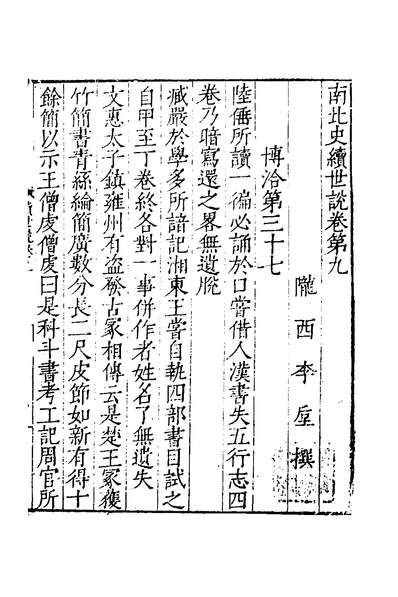 南北史續世說卷第九
隴西李垕撰
博洽第三十七
陸倕所讀一徧必誦於口嘗借人漢書失五行志四
卷乃暗寫還之畧無遺脫
臧嚴於學多所諳記湘東王嘗自執四部書目試之
自甲至丁卷終各對一事併作者姓名了無遺失
文惠太子鎮雍州有盗發古冢相傳云是楚王冢獲
竹簡書青絲綸簡廣數分長二尺皮節如新有得十
餘簡以示王僧虔僧虔曰是科斗書考工記周官所